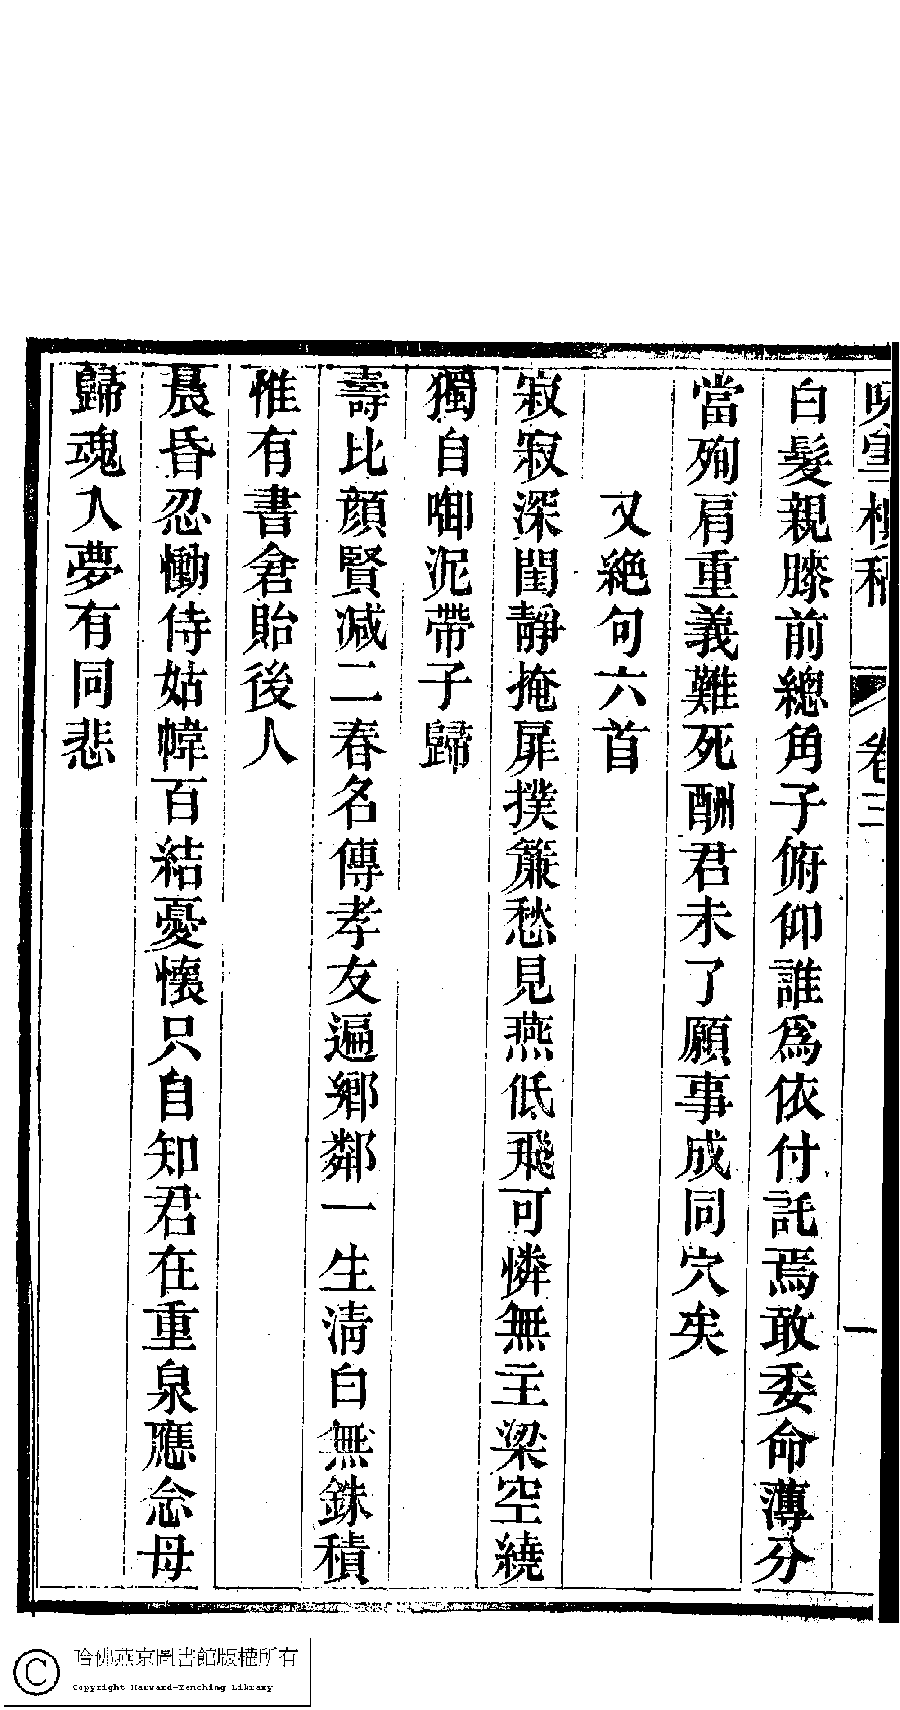 白髮親膝前總角子俯仰誰爲依付託焉敢委命薄分
當殉肩重義難死酬君未了願事成同穴矣
又絶句六首
寂寂深閨靜掩扉撲簾愁見燕低飛可憐無主梁空繞
獨自啣泥帶子歸
壽比顔賢减二春名傳孝友遍鄉鄰一生淸白無銖積
惟有書倉貽後人
晨昏忍慟侍姑幃百結憂懷只自知君在重泉應念母
歸魂入夢有同悲
卷三
一
哈佛燕京圖書館版權所有
Copyright Harvard-Yenching Library